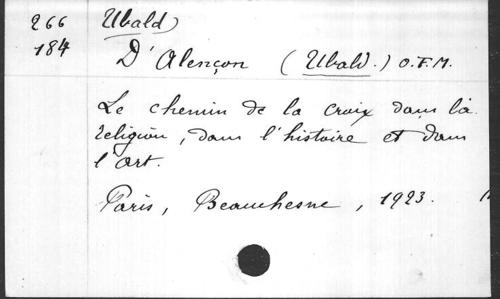 266 Ubald)
184 D'Alençon (Ubald.) O.F.M.
Le chemin de la croix dans la
religion, dans l'histoire et dans
l'art.
Paris, Beauchesne, 1923.